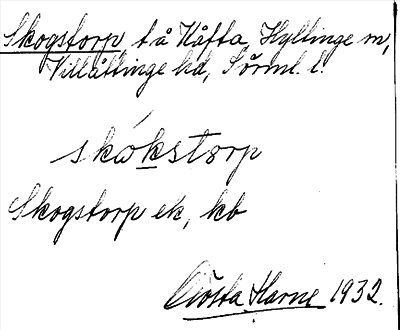 Skogstorp, t å Kåfta, Hyltinge sn,
Villåttinge hd, Sörml. l.
skókstorp
Skogstorp ek, kb
Gösta Harne 1932.